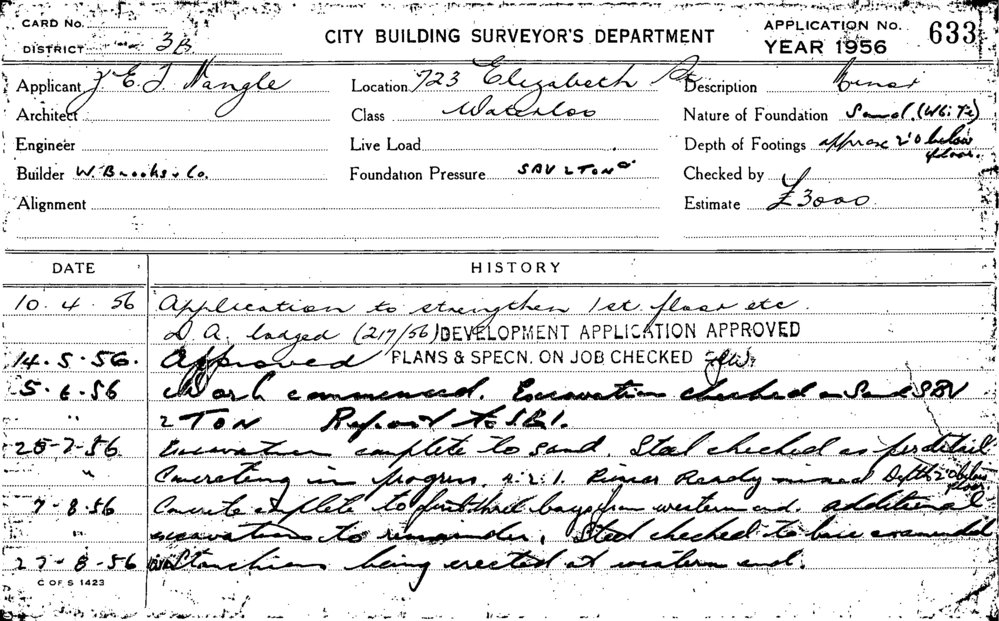 CARD No.
DISTRICT 3B
CITY BUILDING SURVEYOR'S DEPARTMENT
APPLICATION No. 633
YEAR 1956
Applicant J. E. T. Nangle
Location 723 Elizabeth St
Description
Architect
Class Waterloo
Nature of Foundation Sand. (White)
Engineer
Live Load
Depth of Footings approx 2'0 below floor.
Builder W. Brooks & Co.
Foundation Pressure SBV 2 TON
Checked by
Alignment
Estimate £3000
DATE HISTORY
10.4.56 Application to strengthen 1st. floor etc.
D.A. lodged (217/56) DEVELOPMENT APPLICATION APPROVED
14.5.56. Approved PLANS & SPECN. ON JOB CHECKED
5.6.56 Work commenced. Excavation checked on Sand SBV
" 2 TON Report to SBI.
25-7-56 Excavation complete to sand. Steel checked as per detail
" Concreting in progress. 4.2.1. Ready mixed Depth 2'0 below floor
7-8-56 Concrete complete to first three bays from western end. additional
excavations to remainder. Steel checked to base as amended
27-8-56 Stanchions being erected at western end.
C OF S 1423